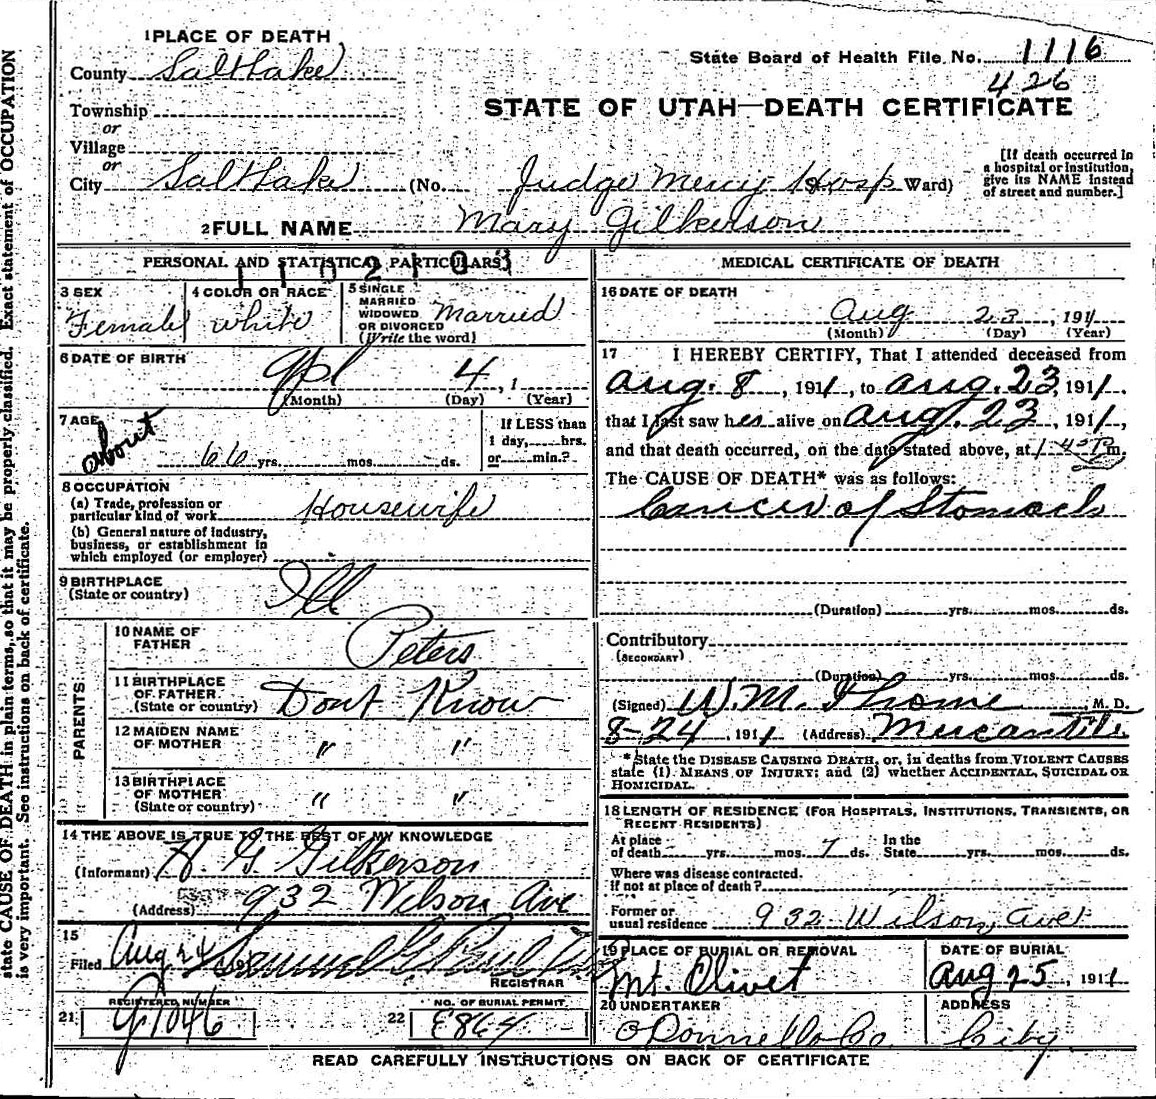 state CAUSE OF DEATH in plain terms, so that it may be properly classified. Exact statement of OCCUPATION
is very important. See instructions on back of certificate.
1 PLACE OF DEATH
County Salt Lake
Township
or
Village
or
City Salt Lake (No. Judge Mercy Hosp Ward)
[If death occurred in
a hospital or institution,
give its NAME instead
of street and number.]
State Board of Health File No. 1116
426
STATE OF UTAH—DEATH CERTIFICATE
2 FULL NAME Mary Gilkerson
PERSONAL AND STATISTICAL PARTICULARS
1102103
3 SEX
Female
4 COLOR OR RACE
white
5 SINGLE
MARRIED
WIDOWED
OR DIVORCED
(Write the word)
Married
6 DATE OF BIRTH
Apl 4, 1
(Month) (Day) (Year)
7 AGE
about
66 yrs. mos. ds.
If LESS than
1 day, hrs.
or min.?
8 OCCUPATION
(a) Trade, profession or
particular kind of work Housewife
(b) General nature of industry,
business, or establishment in
which employed (or employer)
9 BIRTHPLACE
(State or country)
Ill
PARENTS
10 NAME OF
FATHER
Peters
11 BIRTHPLACE
OF FATHER
(State or country) Dont Know
12 MAIDEN NAME
OF MOTHER " "
13 BIRTHPLACE
OF MOTHER
(State or country) " "
14 THE ABOVE IS TRUE TO THE BEST OF MY KNOWLEDGE
(Informant) H. G. Gilkerson
(Address) 932 Wilson Ave
15
Filed Aug 24 Samuel G. Paul
REGISTRAR
21 REGISTERED NUMBER
22 NO. OF BURIAL PERMIT
E864
MEDICAL CERTIFICATE OF DEATH
16 DATE OF DEATH
Aug 23, 1911
(Month) (Day) (Year)
17 I HEREBY CERTIFY, That I attended deceased from
Aug. 8, 1911, to Aug. 23, 1911.
that I last saw her alive on Aug. 23, 1911,
and that death occurred, on the date stated above, at 1 45 P m.
The CAUSE OF DEATH* was as follows:
Cancer of Stomach
(Duration) yrs. mos. ds.
Contributory
(SECONDARY)
(Duration) yrs. mos. ds.
(Signed) W. M. Thome M. D.
8-24, 1911 (Address) Mercantile
* State the DISEASE CAUSING DEATH, or, in deaths from VIOLENT CAUSES
state (1) MEANS OF INJURY; and (2) whether ACCIDENTAL, SUICIDAL OR
HOMICIDAL.
18 LENGTH OF RESIDENCE (FOR HOSPITALS, INSTITUTIONS, TRANSIENTS, OR
RECENT RESIDENTS)
At place
of death yrs. mos. 7 ds.
In the
State yrs. mos. ds.
Where was disease contracted.
if not at place of death?
Former or
usual residence 932 Wilson Ave
19 PLACE OF BURIAL OR REMOVAL
Mt. Olivet
DATE OF BURIAL
Aug 25, 1911
20 UNDERTAKER
O'Donnell & Co
ADDRESS
City
READ CAREFULLY INSTRUCTIONS ON BACK OF CERTIFICATE